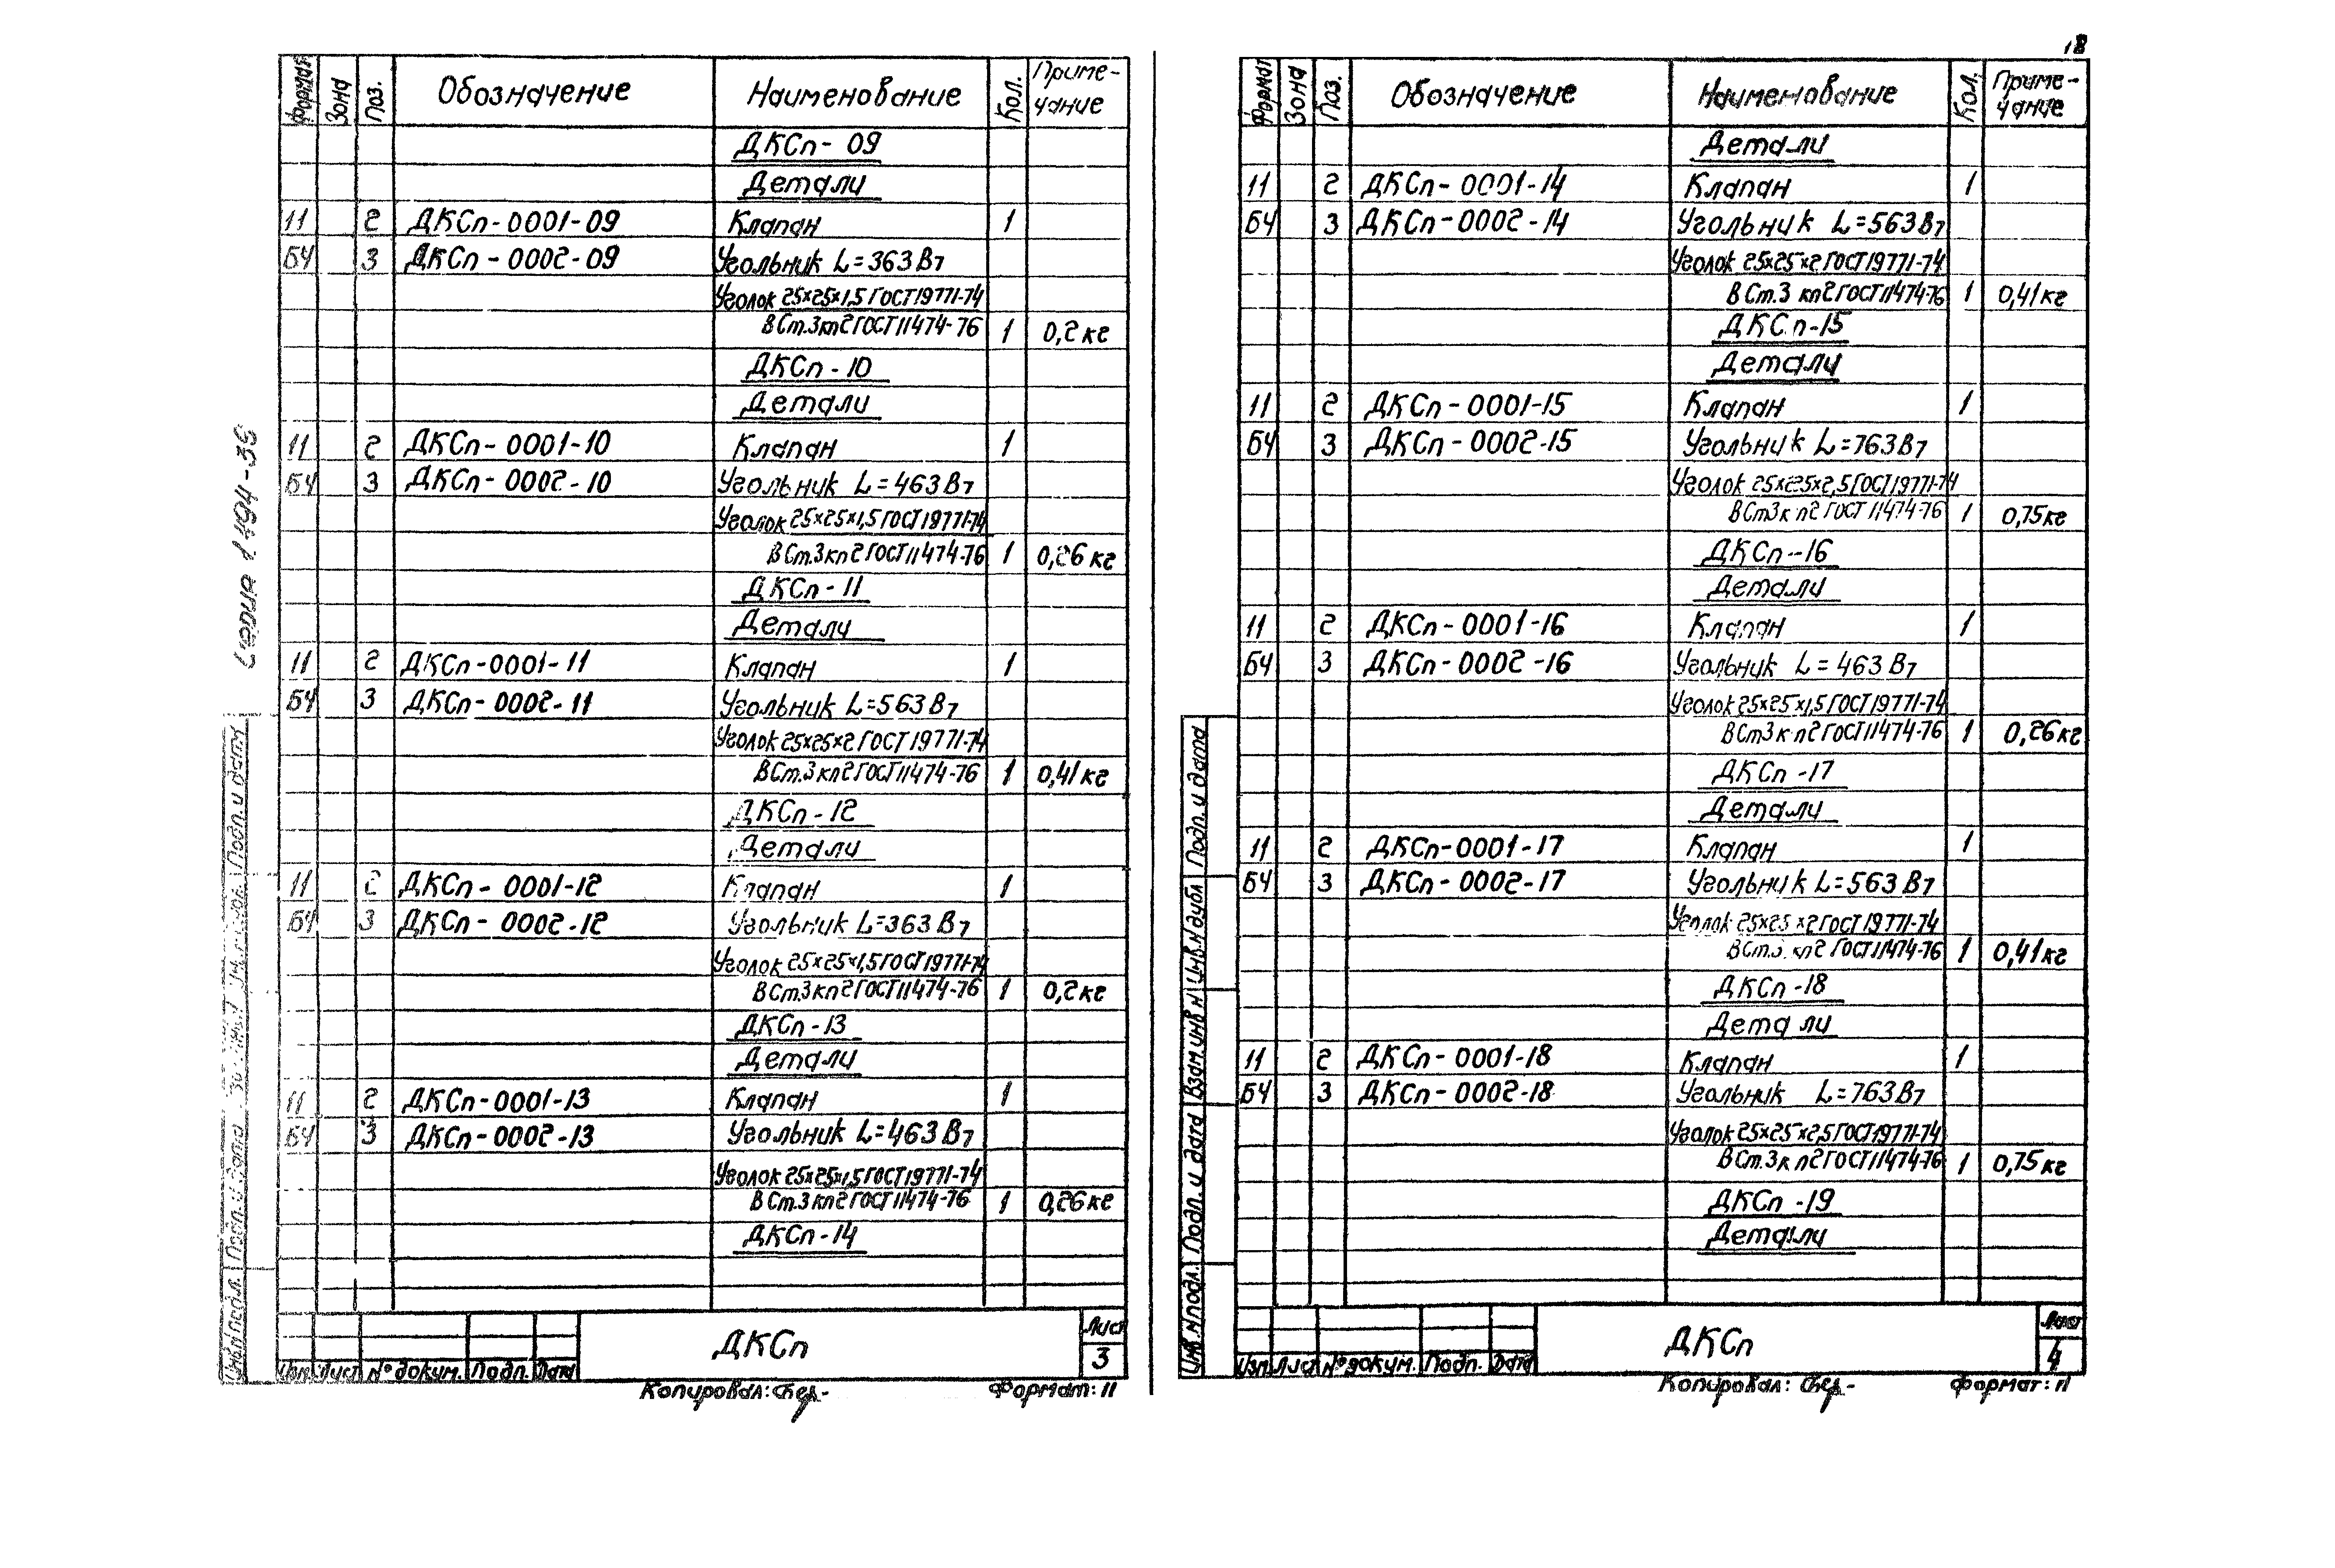 18
Формат Зона Поз. Обозначение Наименование Кол. Приме-
чание
ДКСп-09
Детали
11 2 ДКСп-0001-09 Клапан 1
БЧ 3 ДКСп-0002-09 Угольник L=363В7
Уголок 25×25×1,5 ГОСТ19771-74
ВСт.3кп2 ГОСТ11474-76 1 0,2кг
ДКСп-10
Детали
11 2 ДКСп-0001-10 Клапан 1
БЧ 3 ДКСп-0002-10 Угольник L=463В7
Уголок 25×25×1,5 ГОСТ19771-74
ВСт.3кп2 ГОСТ11474-76 1 0,26кг
ДКСп-11
Детали
11 2 ДКСп-0001-11 Клапан 1
БЧ 3 ДКСп-0002-11 Угольник L=563В7
Уголок 25×25×2 ГОСТ19771-74
ВСт.3кп2 ГОСТ11474-76 1 0,41кг
ДКСп-12
Детали
11 2 ДКСп-0001-12 Клапан 1
БЧ 3 ДКСп-0002-12 Угольник L=363В7
Уголок 25×25×1,5 ГОСТ19771-74
ВСт.3кп2 ГОСТ11474-76 1 0,2кг
ДКСп-13
Детали
11 2 ДКСп-0001-13 Клапан 1
БЧ 3 ДКСп-0002-13 Угольник L=463В7
Уголок 25×25×1,5 ГОСТ19771-74
ВСт.3кп2 ГОСТ11474-76 1 0,26кг
ДКСп-14
ДКСп
Лист
3
Изм. Лист № докум. Подп. Дата
Копировал: Формат: 11
Серия 1.494-
Инв.№подл. Подп. и дата Подп. и дата
Формат Зона Поз. Обозначение Наименование Кол. Приме-
чание
Детали
11 2 ДКСп-0001-14 Клапан 1
БЧ 3 ДКСп-0002-14 Угольник L=563В7
Уголок 25×25×2 ГОСТ19771-74
ВСт.3 кп2 ГОСТ11474-76 1 0,41кг
ДКСп-15
Детали
11 2 ДКСп-0001-15 Клапан 1
БЧ 3 ДКСп-0002-15 Угольник L=763В7
Уголок 25×25×2,5 ГОСТ19771-74
ВСт3кп2 ГОСТ11474-76 1 0,75кг
ДКСп-16
Детали
11 2 ДКСп-0001-16 Клапан 1
БЧ 3 ДКСп-0002-16 Угольник L=463В7
Уголок 25×25×1,5 ГОСТ19771-74
ВСт3кп2 ГОСТ11474-76 1 0,26кг
ДКСп-17
Детали
11 2 ДКСп-0001-17 Клапан 1
БЧ 3 ДКСп-0002-17 Угольник L=563В7
Уголок 25×25×2 ГОСТ19771-74
ВСт.3.кп2 ГОСТ11474-76 1 0,41кг
ДКСп-18
Детали
11 2 ДКСп-0001-18 Клапан 1
БЧ 3 ДКСп-0002-18 Угольник L=763В7
Уголок 25×25×2,5 ГОСТ19771-74
ВСт.3кп2 ГОСТ11474-76 1 0,75кг
ДКСп-19
Детали
ДКСп
Лист
4
Изм. Лист № докум. Подп. Дата
Копировал: Формат: 11
Инв.№подл. Подп. и дата Взам.инв.№ Инв.№дубл Подп. и дата